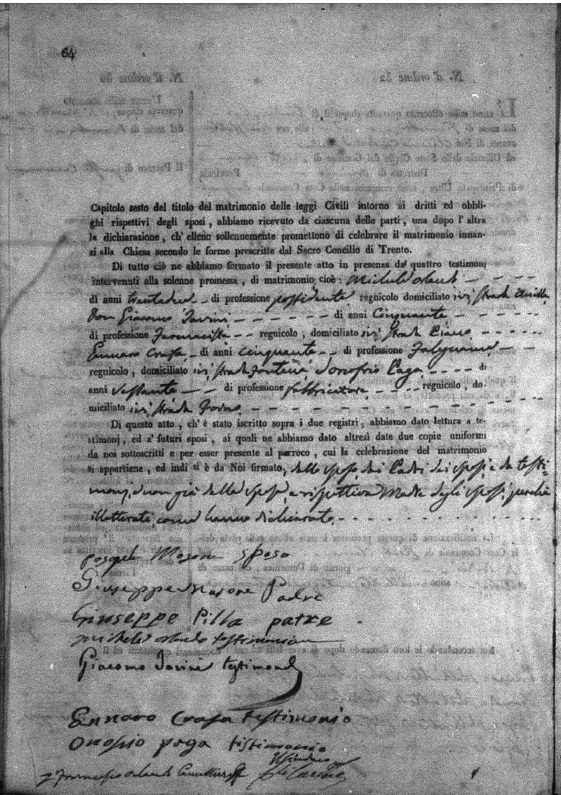 64
Capitolo sesto del titolo del matrimonio delle leggi Civili intorno ai dritti ed obbli
ghi rispettivi degli sposi, abbiamo ricevuto da ciascuna delle parti, una dopo l'altra
la dichiarazione, ch'elleno sollennemente promettono di celebrare il matrimonio innan-
zi alla Chiesa secondo le forme prescritte dal Sacro Concilio di Trento.
Di tutto ciò ne abbiamo formato il presente atto in presenza de' quattro testimonj
intervenuti alla solenne promessa, di matrimonio cioè: Michele Orlando
di anni di professione possidente regnicolo domiciliato ivi strada
Don Giacomo Iavini di anni Cinquanta
di professione Farmacista regnicolo, domiciliato ivi strada Piano
Ennaro Crafa di anni cinquanta di professione Falegname
regnicolo, domiciliato ivi strada Fontana Donofrio Paga di
anni Sessanta di professione fabbricatore regnicolo, do
miciliato ivi strada Forno
Di questo atto, ch'è stato iscritto sopra i due registri, abbiamo dato lettura a te-
stimonj, ed a' futuri sposi, ai quali ne abbiamo dato altresì date due copie uniformi
da noi sottoscritti e per esser presente al parroco, cui la celebrazione del matrimonio
si appartiene, ed indi si è da Noi firmato, dello sposo dei Padri dei sposi, e da testi
monj, e non già della sposa, e rispettiva Madre degli sposi, perchè
illetterati, come hanno dichiarato
Masone Sposo
Giuseppe Masone Padre
Giuseppe Pilla patre
Michele Orlando testimonio
Giacomo Iavini testimone
Ennaro Crafa testimonio
Onofrio paga testimonio
Francesco Orlando